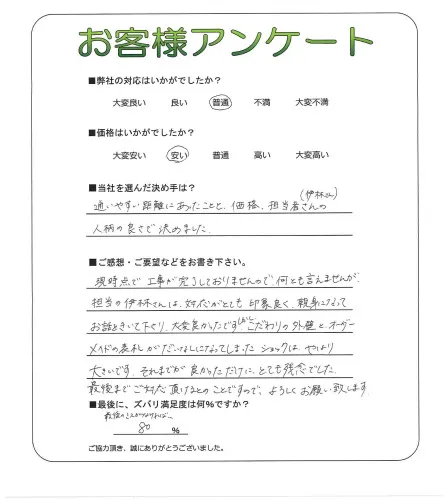 お客様アンケート
■弊社の対応はいかがでしたか?
大変良い 良い 普通 不満 大変不満
■価格はいかがでしたか?
大変安い 安い 普通 高い 大変高い
■当社を選んだ決め手は?
(伊林さん)
通いやすい距離にあったことと、価格、担当者さんの
人柄の良さで決めました
■ご感想・ご要望などをお書き下さい。
現時点で工事が完了しておりませんので、何とも言えませんが、
担当の伊林さんは、対応がとても印象良く、親身になって
お話をきいて下さり、大変良かったです しかし、こだわりの外壁と、オーダー
メイドの表札がだいなしになってしまったショックは、やはり
大きいです。それまでが良かっただけに、とても残念でした。
最後までご対応頂けるとのことですので、よろしくお願い致します
■最後に、ズバリ満足度は何%ですか?
最後の
なければ
80 %
ご協力頂き、誠にありがとうございました。